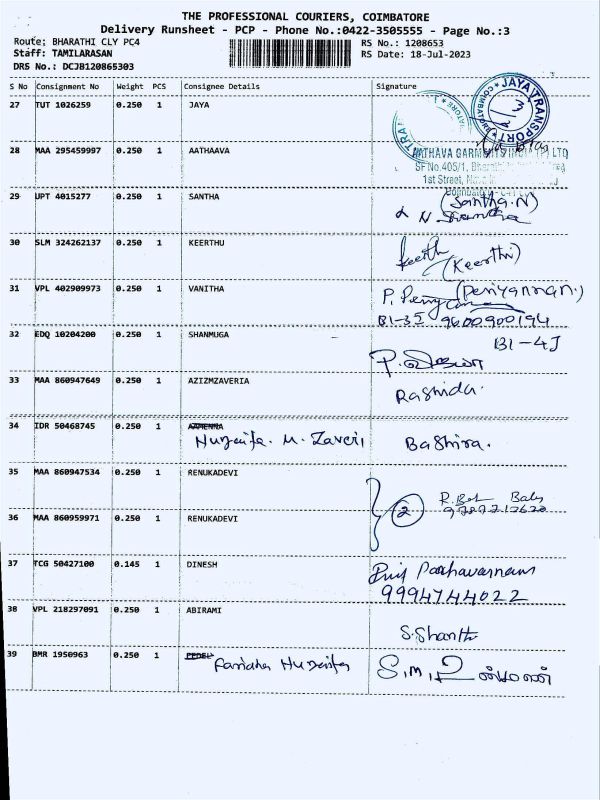 THE PROFESSIONAL COURIERS, COIMBATORE
Delivery Runsheet - PCP - Phone No.:0422-3505555 - Page No.:3
Route: BHARATHI CLY PC4 RS No.: 1208653
Staff: TAMILARASAN RS Date: 18-Jul-2023
DRS No.: DCJB120865303
S No Consignment No Weight PCS Consignee Details Signature
27 TUT 1026259 0.250 1 JAYA JAYA TRANSPORT
28 MAA 295459997 0.250 1 AATHAAVA
AATHAVA GARMENTS (P) LTD
SF No.405/1,
1st Street,
Coimbatore
29 UPT 4015277 0.250 1 SANTHA (Santha.N)
N Shantha
30 SLM 324262137 0.250 1 KEERTHU Keerth
(Keerthi)
31 VPL 402909973 0.250 1 VANITHA P. (Periyannan.)
B1-3I 9600900194
32 EDQ 10204200 0.250 1 SHANMUGA B1-4J
33 MAA 860947649 0.250 1 AZIZMZAVERIA Rashida.
34 IDR 50468745 0.250 1
Huzaifa. M. Zaveri, Bashira.
35 MAA 860947534 0.250 1 RENUKADEVI
2 R. Baby
36 MAA 860959971 0.250 1 RENUKADEVI
37 TCG 50427100 0.145 1 DINESH
9994744022
38 VPL 218297091 0.250 1 ABIRAMI
S.Shanthi
39 BMR 1950963 0.250 1
Huzaifa S.M.